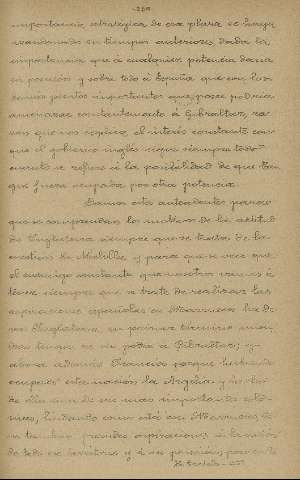 importancia estratégica de esa plaza se haya
reconocido en tiempos anteriores dada la
importancia que á cualquier potencia daria
su posesión y sobre todo á España que con los
demás puntos importantes que posee podria
amenazar constantemente á Gibraltar, ra-
zon que nos explica el interés constante con
que el gobierno inglés sigue siempre todo
cuanto se refiere á la posibilidad de que ten
que fuera ocupada por otra potencia.
Damos estos antecedentes para
que se comprendan los motivos de la actitud
de Inglaterra siempre que se trata de la
cuestion de Melilla y para que se vea que
el enemigo constante que nosotros vamos á
tener siempre que se trate de realizar las
aspiraciones españolas en Marruecos ha de
ser Inglaterra, en primer término mien-
tras tenga en su poder á Gibraltar; y
ahora además Francia porque habiendo
ocupado esta nacion la Argelia y
de ella una de sus mas importantes colo-
nias, lindando como está con Marruecos,
tambien grandes aspiraciones
de todo ese territorio y á su posesión, por